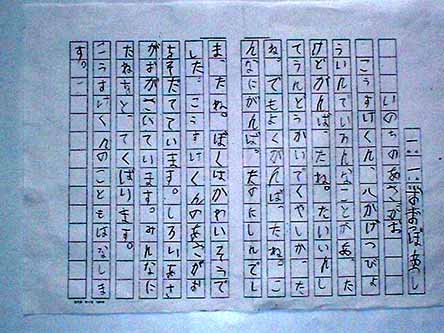 いのちのあさがお
こうすけくん、八かげつびょ
ういんでいろんなことがあった
けどがんばったね。たいいんし
てうんどうかいでてくやしかった
ね。でもよくがんばったね。こ
んなにがんばったのにしんでし
まったね。ぼくはかわいそうで
した。こうすけくんのあさがお
をそだてています。しろいあさ
がおがさいています。みんなに
たねをとってくばります。
こうすけくんのこともはなしま
す。